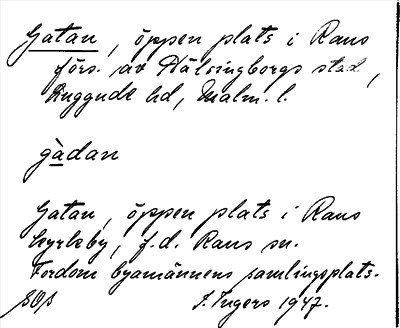 Gatan, öppen plats i Raus
förs. av Hälsingborgs stad,
Luggude hd, Malm. l.
gàdan
Gatan, öppen plats i Raus
kyrkby, f.d. Raus sn.
Fordom byamännens samlingsplats.
I. Ingers 1947.